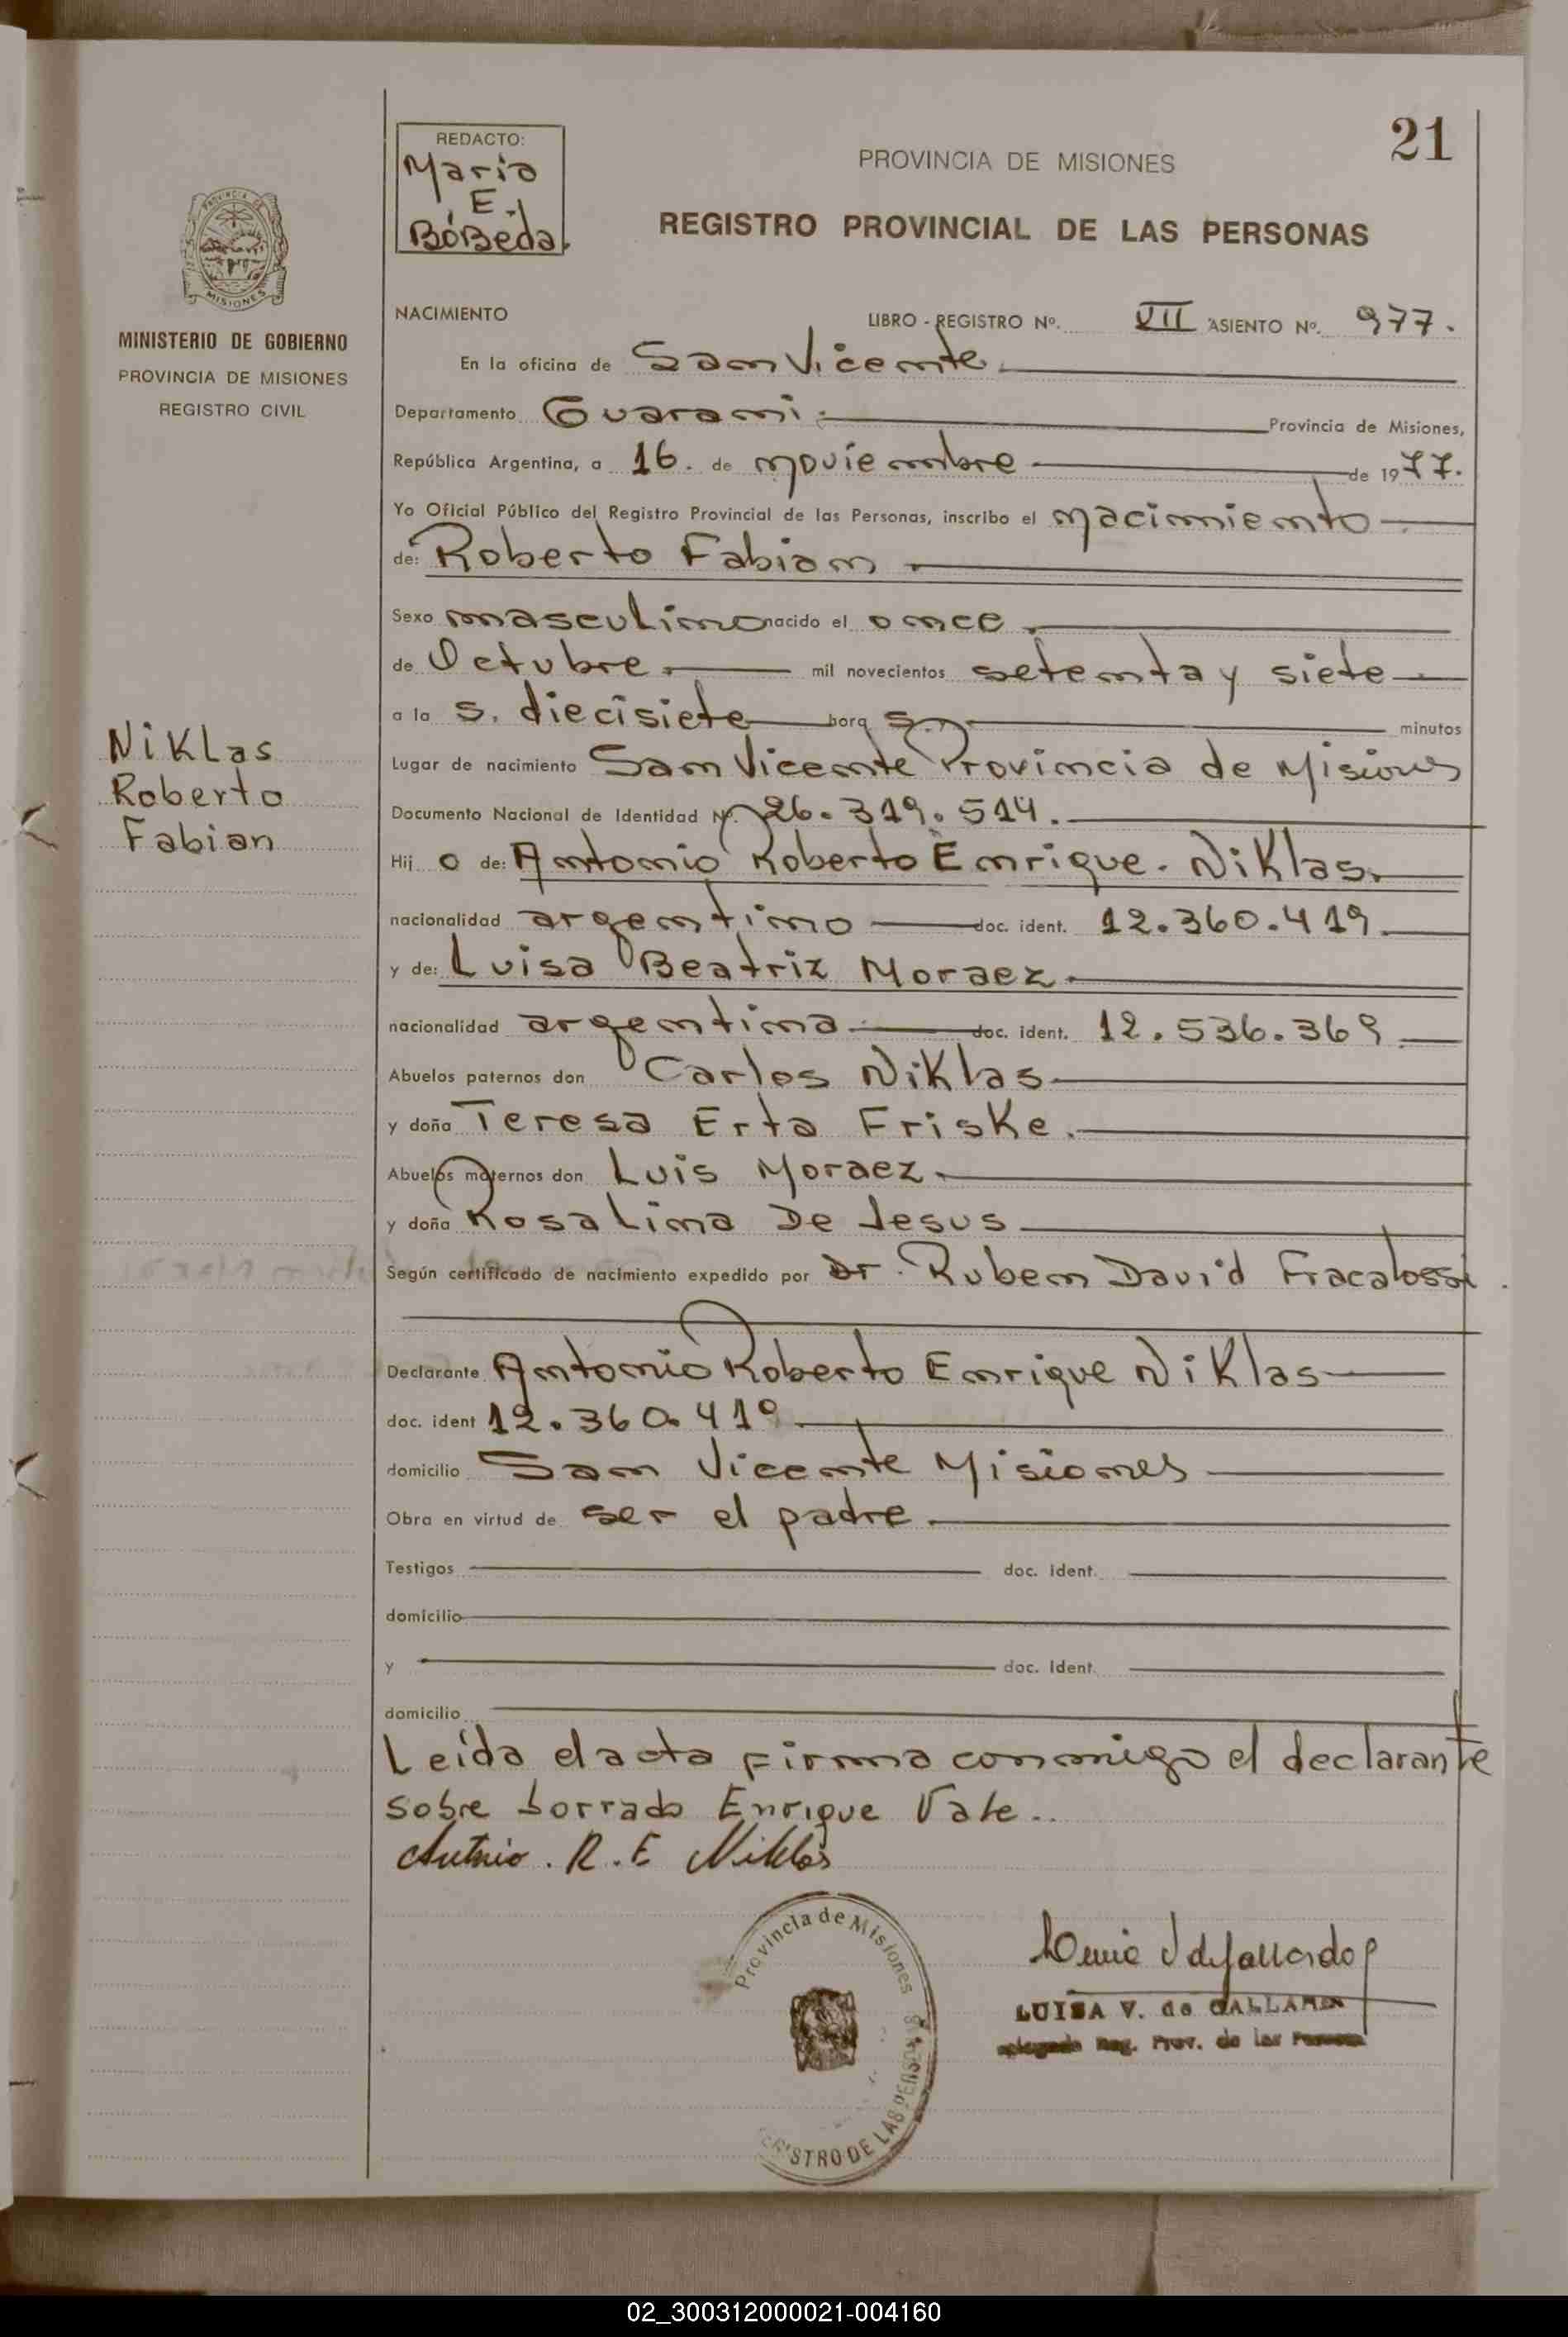 21
REDACTO:
Maria
E.
BóBeda.
PROVINCIA DE MISIONES
REGISTRO PROVINCIAL DE LAS PERSONAS
PROVINCIA DE
MISIONES
MINISTERIO DE GOBIERNO
PROVINCIA DE MISIONES
REGISTRO CIVIL
NACIMIENTO LIBRO - REGISTRO Nº. VII ASIENTO Nº. 977.
En la oficina de San Vicente.
Departamento Guarani. Provincia de Misiones,
República Argentina, a 16. de noviembre de 1977.
Yo Oficial Público del Registro Provincial de las Personas, inscribo el nacimiento
de: Roberto Fabian
Sexo masculino nacido el once.
de Octubre. mil novecientos setenta y siete
a la s. diecisiete hora s. minutos
Lugar de nacimiento San Vicente Provincia de Misiones
Documento Nacional de Identidad Nº. 26.319.514.
Niklas
Roberto
Fabian
Hij o de: Antonio Roberto Enrique. Niklas.
nacionalidad argentino doc. ident. 12.360.419.
y de: Luisa Beatriz Moraez.
nacionalidad argentina. doc. ident. 12.536.369
Abuelos paternos don Carlos Niklas
y doña Teresa Erta Friske.
Abuelos maternos don Luis Moraez.
y doña Rosa Lina De Jesus
Según certificado de nacimiento expedido por Dr. Ruben David Fracalossi.
Declarante Antonio Roberto Enrique Niklas
doc. ident 12.360.419
domicilio San Vicente Misiones
Obra en virtud de ser el padre.
Testigos doc. ident.
domicilio
y doc. ident.
domicilio
Leída el acta firma conmigo el declarante
sobre borrado Enrique Vale..
Antonio. R. E Niklas
Provincia de Misiones
REGISTRO DE LAS PERSONAS
LUISA V. de GALLARDO
Reg. Prov. de las Personas
02_300312000021-004160